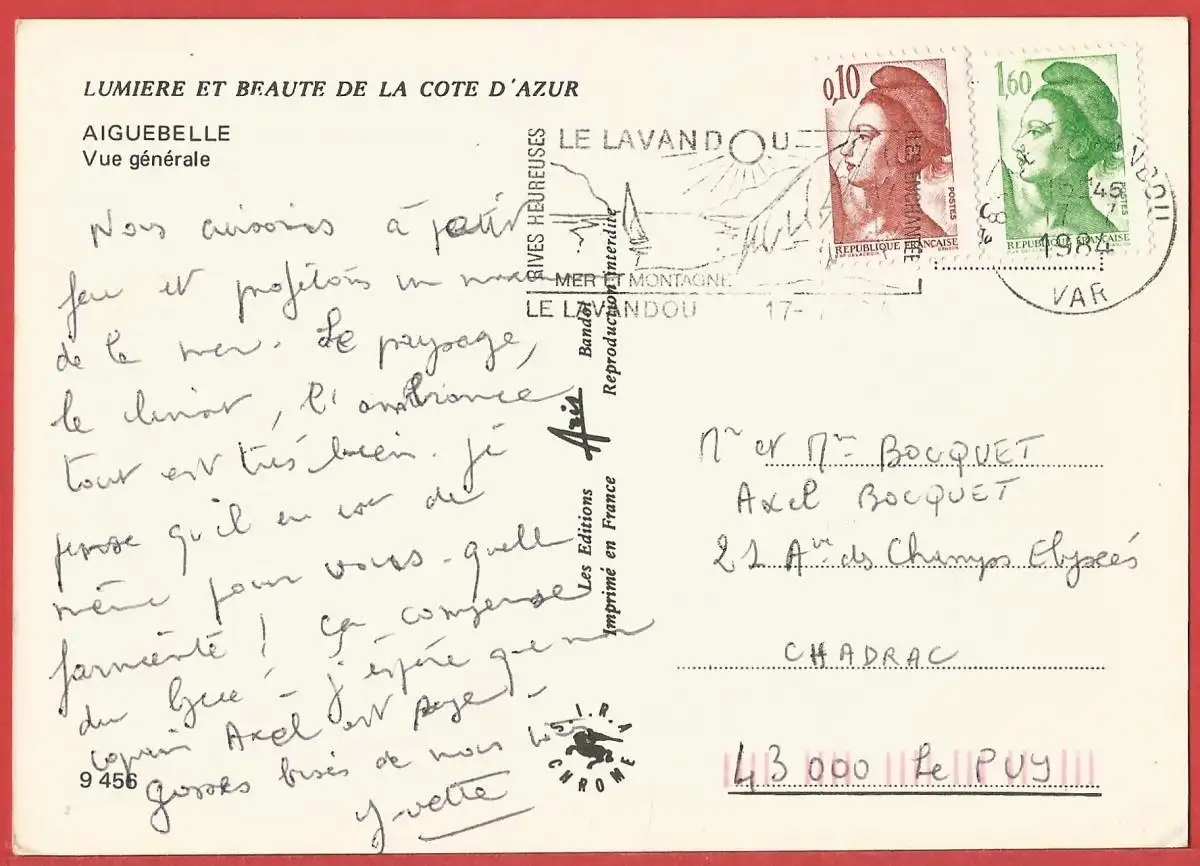 LUMIERE ET BEAUTE DE LA COTE D'AZUR
AIGUEBELLE
Vue générale
Nous cuisons à petit
feu et profitons un max
de la mer. Le paysage,
le climat, l'ambiance
tout est très bien. Je
pense qu'il en est de
même pour vous. quelle
farniente ! ça compense
du lycée - j'espère que mon
copain Axel est sage -
grosses bises de nous tous
Yvette
9 456
Les Editions Aris Bandol
Imprimé en France Reproduction interdite
S.I.R.A.
CHROME
RIVES HEUREUSES
LE LAVANDOU
MER ET MONTAGNE
LE LAVANDOU 17-
0,10
POSTES
REPUBLIQUE FRANÇAISE
1,60
POSTES
REPUBLIQUE FRANÇAISE
45
1984
VAR
Mr et Mme BOCQUET
Axel BOCQUET
21 Ave des Champs Elysées
CHADRAC
43 000 Le PUY